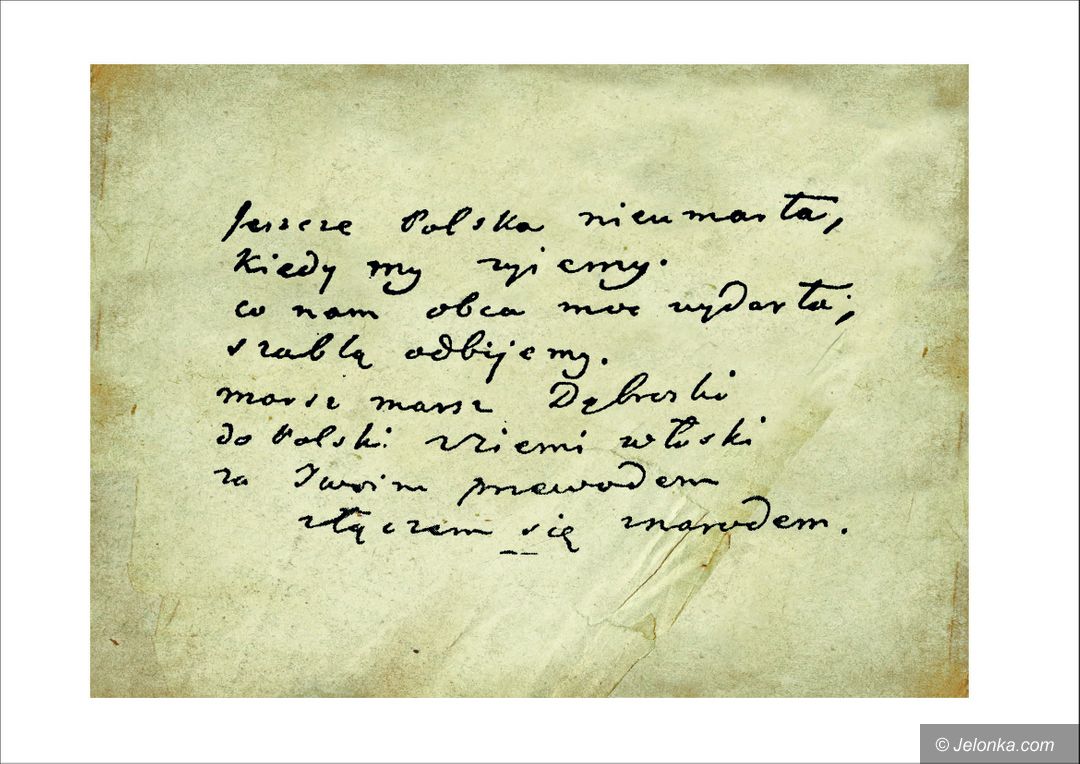 Jeszcze Polska nieumarła,
kiedy my zyiemy.
co nam obca moc wydarła,
szablą odbijemy.
marsz marsz Dąbroski
do Polski zziemi włoski
za Twoim przewodem
złączem się znarodem.
© Jelonka.com